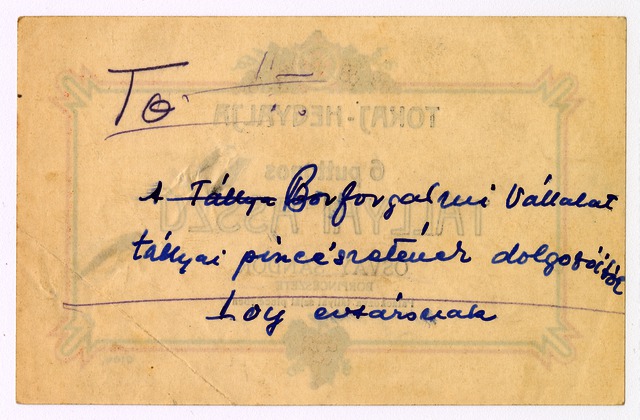 To
A Tállya Borforgalmi Vállalat
tállyai pincészetének dolgozóitól
Loy evtársnak
TOKAJ-HEGYALJA
6 puttonos
TÁLLYAI ASSZÚ
OSVÁT SÁNDOR
BORPINCÉSZETE